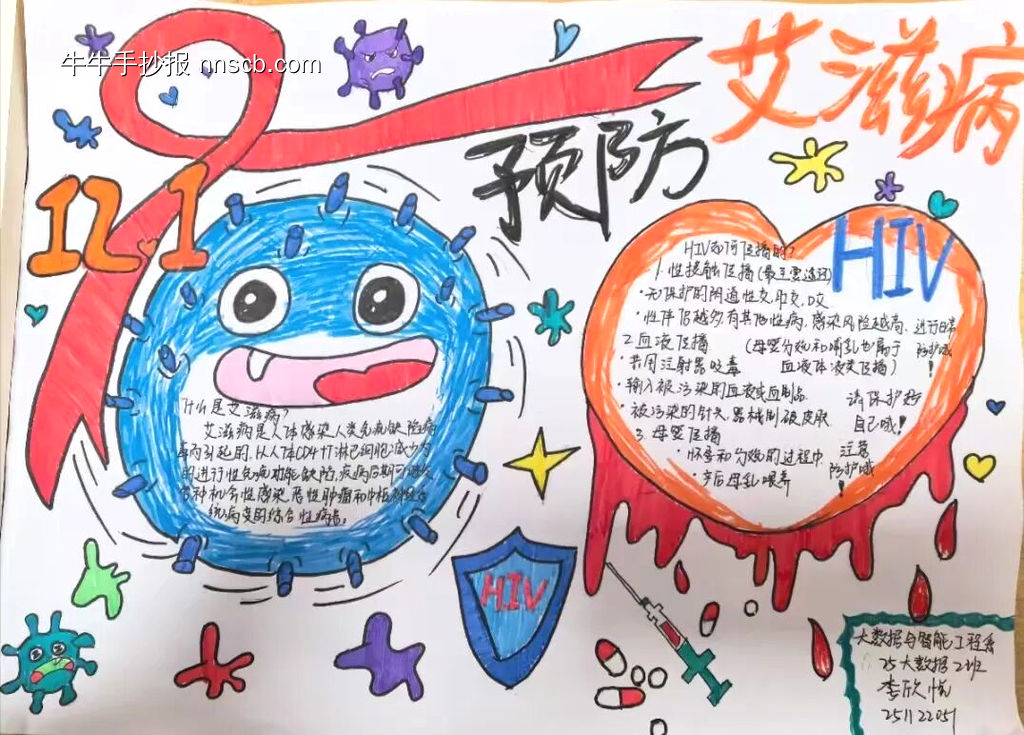 牛牛手抄报 nnscb.com
艾滋病
预防
12.1
HIV
什么是艾滋病?
艾滋病是人体感染人类免疫缺陷病
毒引起的,以人体CD4+T淋巴细胞减少为
的进行性免疫功能缺陷,疾病后期可继发
各种机会性感染、恶性肿瘤和中枢神经
统病变的综合性病患。
HIV如何传播的?
1.性接触传播(最主要途径)
·无保护的阴道性交、肛交、口交
·性伴侣越多,有其他性病,感染风险越高.
进行日常
防护哦
!
2.血液传播
(母婴分娩和哺乳也属于
血液体液类传播)
·共用注射器吸毒
·输入被污染的血液或血制品
·被污染的针头、器械刺破皮肤
请保护好
自己哦!
3.母婴传播
·怀孕和分娩的过程中
·产后母乳喂养
注意
防护哦
!
HIV
大数据与智能工程系
25大数据2班
李欣悦
25112205